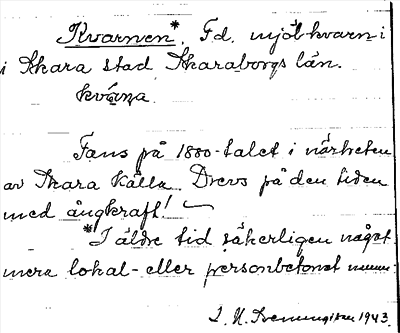 Kvarnen*. F.d. mjölkvarn i
i Skara stad Skaraborgs län.
kvá̤ṇa.
Fans på 1880-talet i närheten
av Skara Källa. Drevs på den tiden
med ångkraft!
*I äldre tid säkerligen något
mera lokal- eller personbetonat namn.
1943.